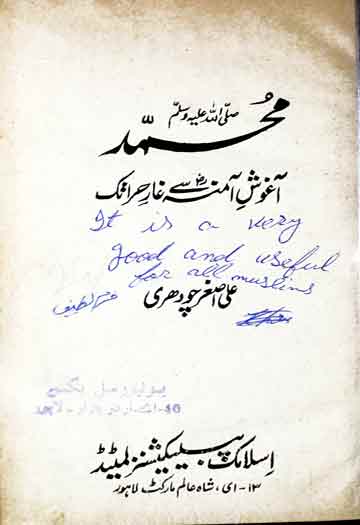 محمد صلی اللہ علیہ وسلم
آغوشِ آمنہؓ سے غارِ حرا تک
It is a very
good and useful
for all muslims
علی اصغر چودھری
یونیورسل بکس
40-اردو بازار-لاہور
اسلامک پبلیکیشنز لمیٹڈ
۱۳-ای، شاہ عالم مارکٹ لاہور